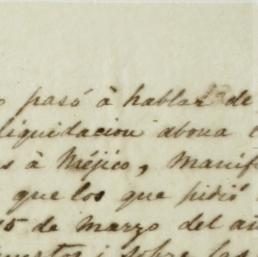 pasó à hablar de
liquidacion abona
à Méjico, Manif
que los que pidió
5 de marzo del añ
sobre las